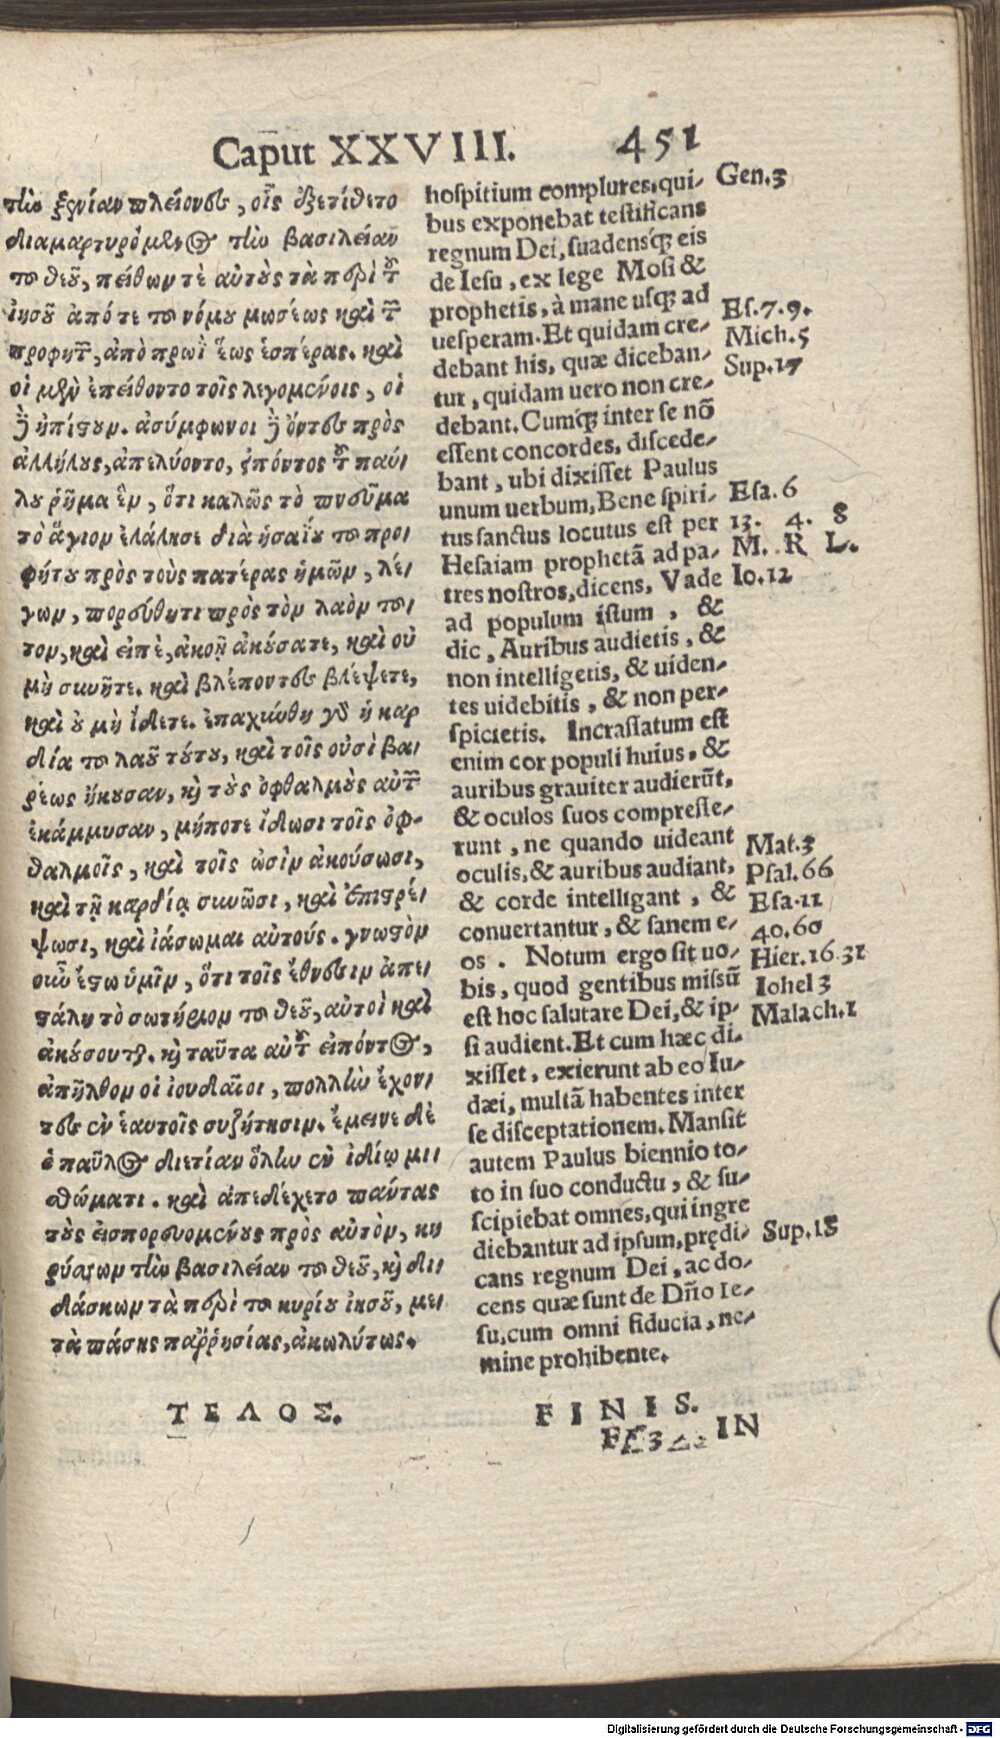 Caput XXVIII. 451
τὴν ξενίαν πλείονες, οἷς ἐξετίθετο
διαμαρτυρόμενος τὴν βασιλείαν
τοῦ θεοῦ, πείθων τὲ αὐτοὺς τὰ περὶ τοῦ
ἰησοῦ ἀπό τε τοῦ νόμου μωσέως καὶ τῶν
προφητῶν, ἀπὸ πρωῒ ἕως ἑσπέρας. καὶ
οἱ μὲν ἐπείθοντο τοῖς λεγομένοις, οἱ
δὲ ἠπίστουν. ἀσύμφωνοι δὲ ὄντες πρὸς
ἀλλήλους, ἀπελύοντο, εἰπόντος τοῦ παύ-
λου ῥῆμα ἓν, ὅτι καλῶς τὸ πνεῦμα
τὸ ἅγιον ἐλάλησε διὰ ἡσαΐου τοῦ προ-
φήτου πρὸς τοὺς πατέρας ἡμῶν, λέ-
γων, πορεύθητι πρὸς τὸν λαὸν τοῦ-
τον, καὶ εἰπὲ, ἀκοῇ ἀκούσατε, καὶ οὐ
μὴ συνῆτε. καὶ βλέποντες βλέψετε,
καὶ οὐ μὴ ἴδετε. ἐπαχύνθη γὰρ ἡ καρ
δία τοῦ λαοῦ τούτου, καὶ τοῖς οὐσὶ βα-
ρέως ἤκουσαν, καὶ τοὺς ὀφθαλμοὺς αὐτῶν
ἐκάμμυσαν, μήποτε ἴδωσι τοῖς ὀφ-
θαλμοῖς, καὶ τοῖς ὠσὶν ἀκούσωσι,
καὶ τῇ καρδίᾳ συνῶσι, καὶ ἐπιστρέ-
ψωσι, καὶ ἰάσωμαι αὐτούς. γνωστὸν
οὖν ἔστω ὑμῖν, ὅτι τοῖς ἔθνεσιν ἀπε-
στάλη τὸ σωτήριον τοῦ θεοῦ, αὐτοὶ καὶ
ἀκούσονται. καὶ ταῦτα αὐτοῦ εἰπόντος,
ἀπῆλθον οἱ ἰουδαῖοι, πολλὴν ἔχον-
τες ἐν ἑαυτοῖς συζήτησιν. ἔμεινε δὲ
ὁ παῦλος διετίαν ὅλην ἐν ἰδίῳ μι-
σθώματι. καὶ ἀπεδέχετο πάντας
τοὺς εἰσπορευομένους πρὸς αὐτὸν, κη
ρύσσων τὴν βασιλείαν τοῦ θεοῦ, καὶ δι-
δάσκων τὰ περὶ τοῦ κυρίου ἰησοῦ, με-
τὰ πάσης παῤῥησίας, ἀκωλύτως.
ΤΕΛΟΣ.
hospitium complures, qui-
bus exponebat testificans
regnum Dei, suadensq́; eis
de Iesu, ex lege Mosi &
prophetis, à mane usq; ad
uesperam. Et quidam cre-
debant his, quæ diceban-
tur, quidam uero non cre-
debant. Cumq́; inter se nõ
essent concordes, discede-
bant, ubi dixisset Paulus
unum uerbum, Bene spiri-
tus sanctus locutus est per
Hesaiam prophetã ad pa-
tres nostros, dicens, Vade
ad populum istum, &
dic, Auribus audietis, &
non intelligetis, & uiden-
tes uidebitis, & non per-
spicietis. Incrassatum est
enim cor populi huius, &
auribus grauiter audierũt,
& oculos suos compresse-
runt, ne quando uideant
oculis, & auribus audiant,
& corde intelligant, &
conuertantur, & sanem e-
os. Notum ergo sit uo-
bis, quod gentibus missũ
est hoc salutare Dei, & ip-
si audient. Et cum hæc di-
xisset, exierunt ab eo Iu-
dæi, multã habentes inter
se disceptationem. Mansit
autem Paulus biennio to-
to in suo conductu, & su-
scipiebat omnes, qui ingre
diebantur ad ipsum, prędi-
cans regnum Dei, ac do-
cens quæ sunt de Dño Ie-
su, cum omni fiducia, ne-
mine prohibente.
FINIS.
IN
Gen.3
Es.7.9.
Mich.5
Sup.17
Esa.6
13. 4. 8
M. R L.
Io.12
Mat.3
Psal.66
Esa.11
40.60
Hier.16.31
Iohel 3
Malach.1
Sup.18
Digitalisierung gefördert durch die Deutsche Forschungsgemeinschaft - DFG